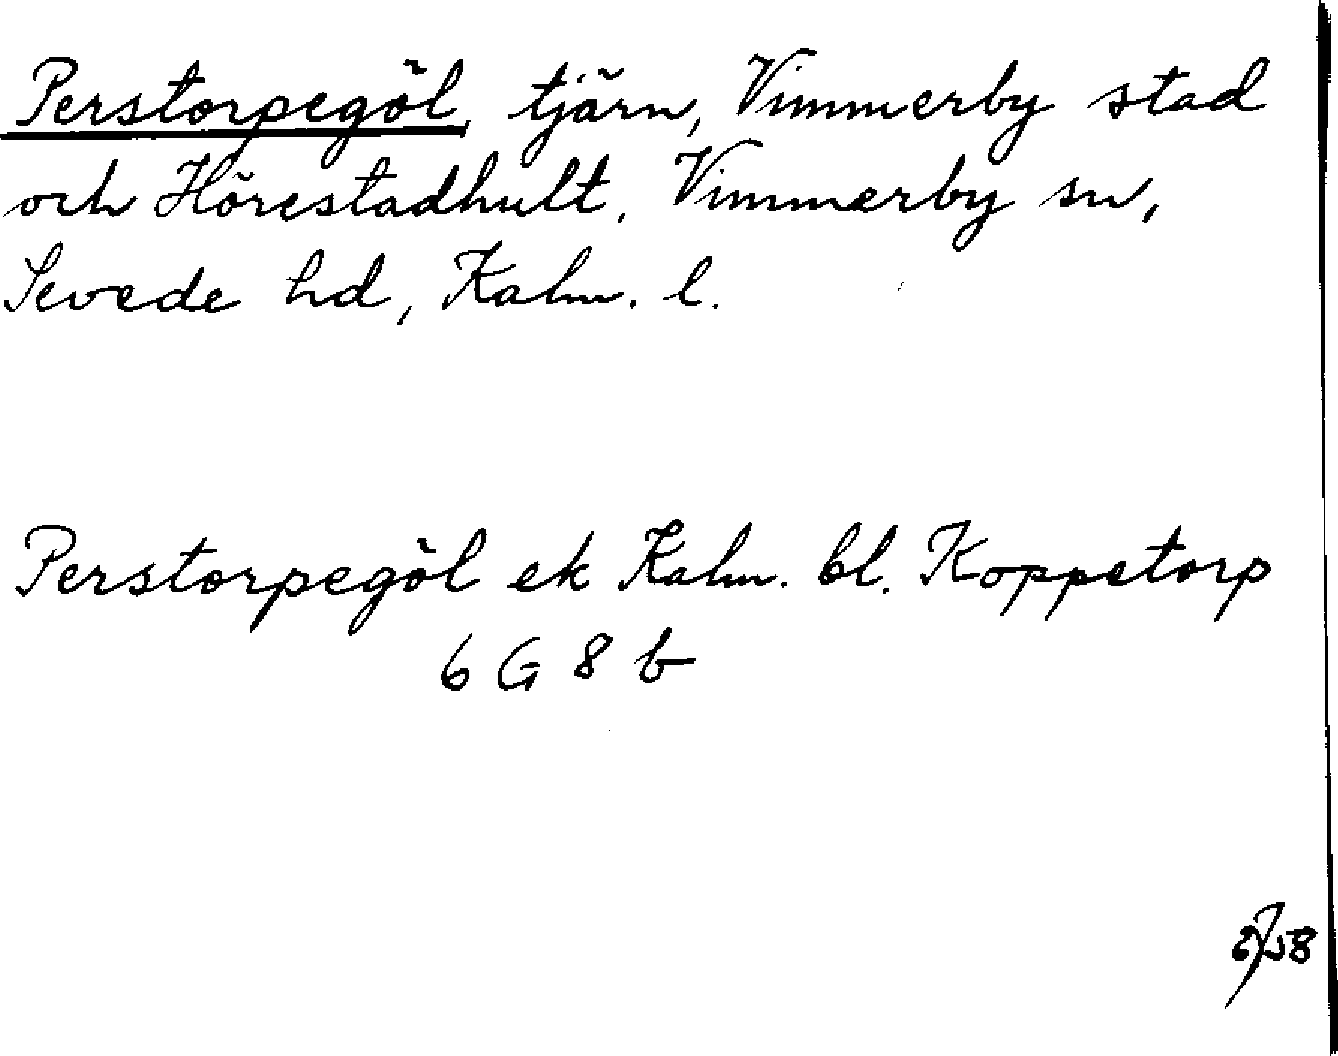 Perstorpegöl, tjärn, Vimmerby stad
och Hörestadhult, Vimmerby sn,
Sevede hd, Kalm. l.
Perstorpegöl ek Kalm. bl. Koppetorp
6 G 8 b